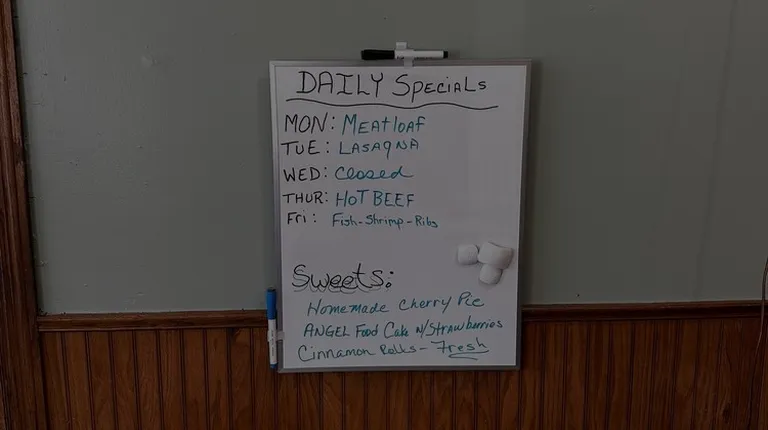 DAILY SpeciaLs
MON: Meatloaf
TUE: LASAGNA
WED: Closed
THUR: HOT BEEF
Fri: Fish-Shrimp-Ribs
Sweets:
Homemade Cherry Pie
ANGEL Food Cake w/Strawberries
Cinnamon Rolls- Fresh